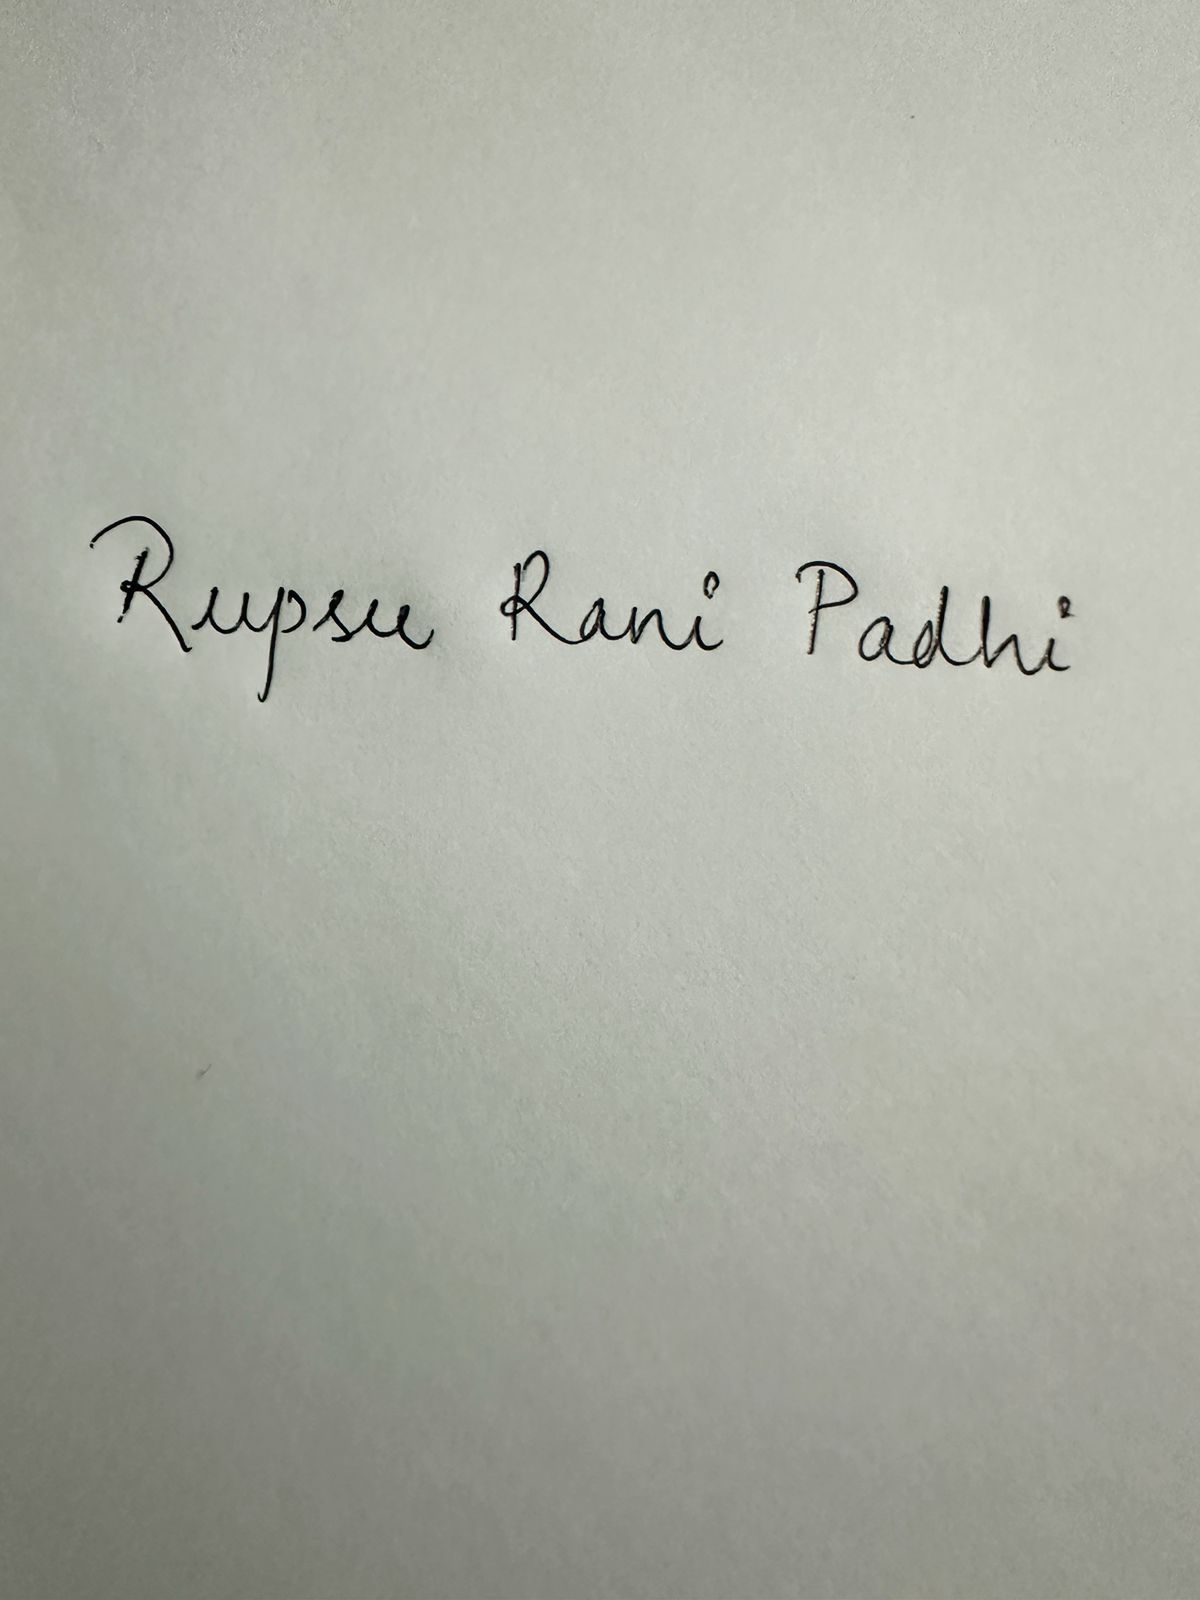 Rupsu Rani Padhi